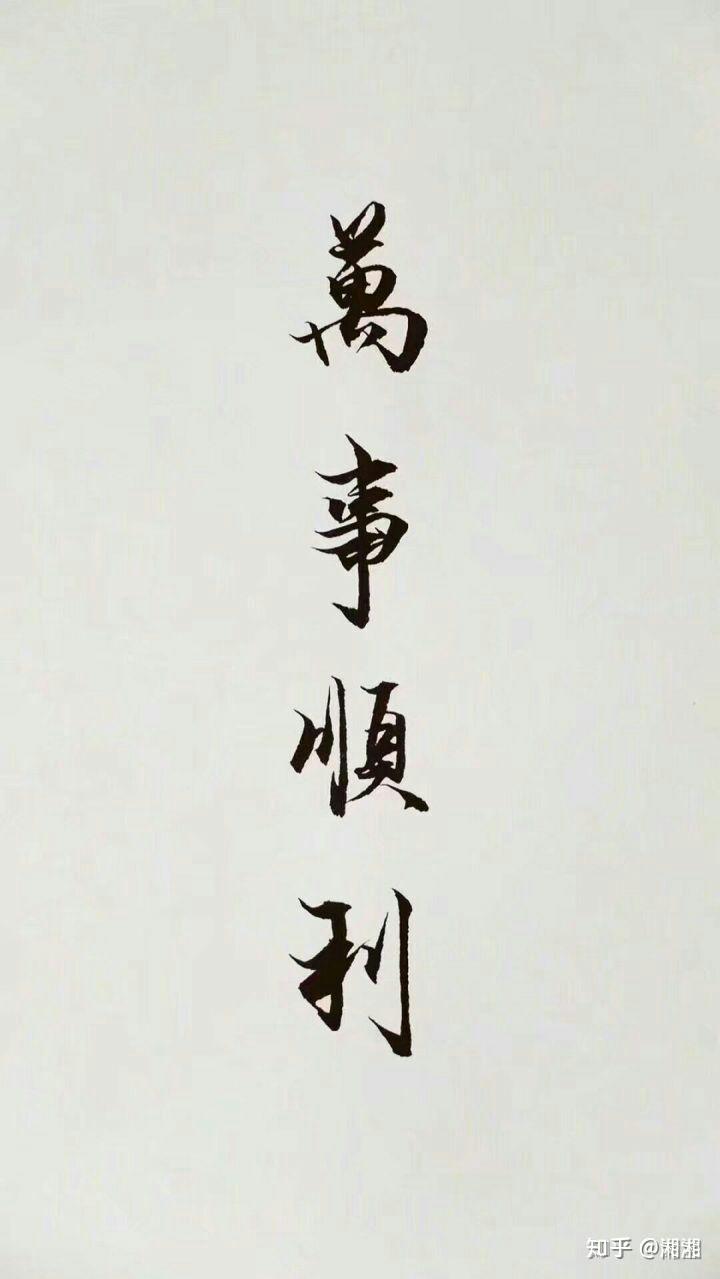 萬事順利
知乎 @湘湘